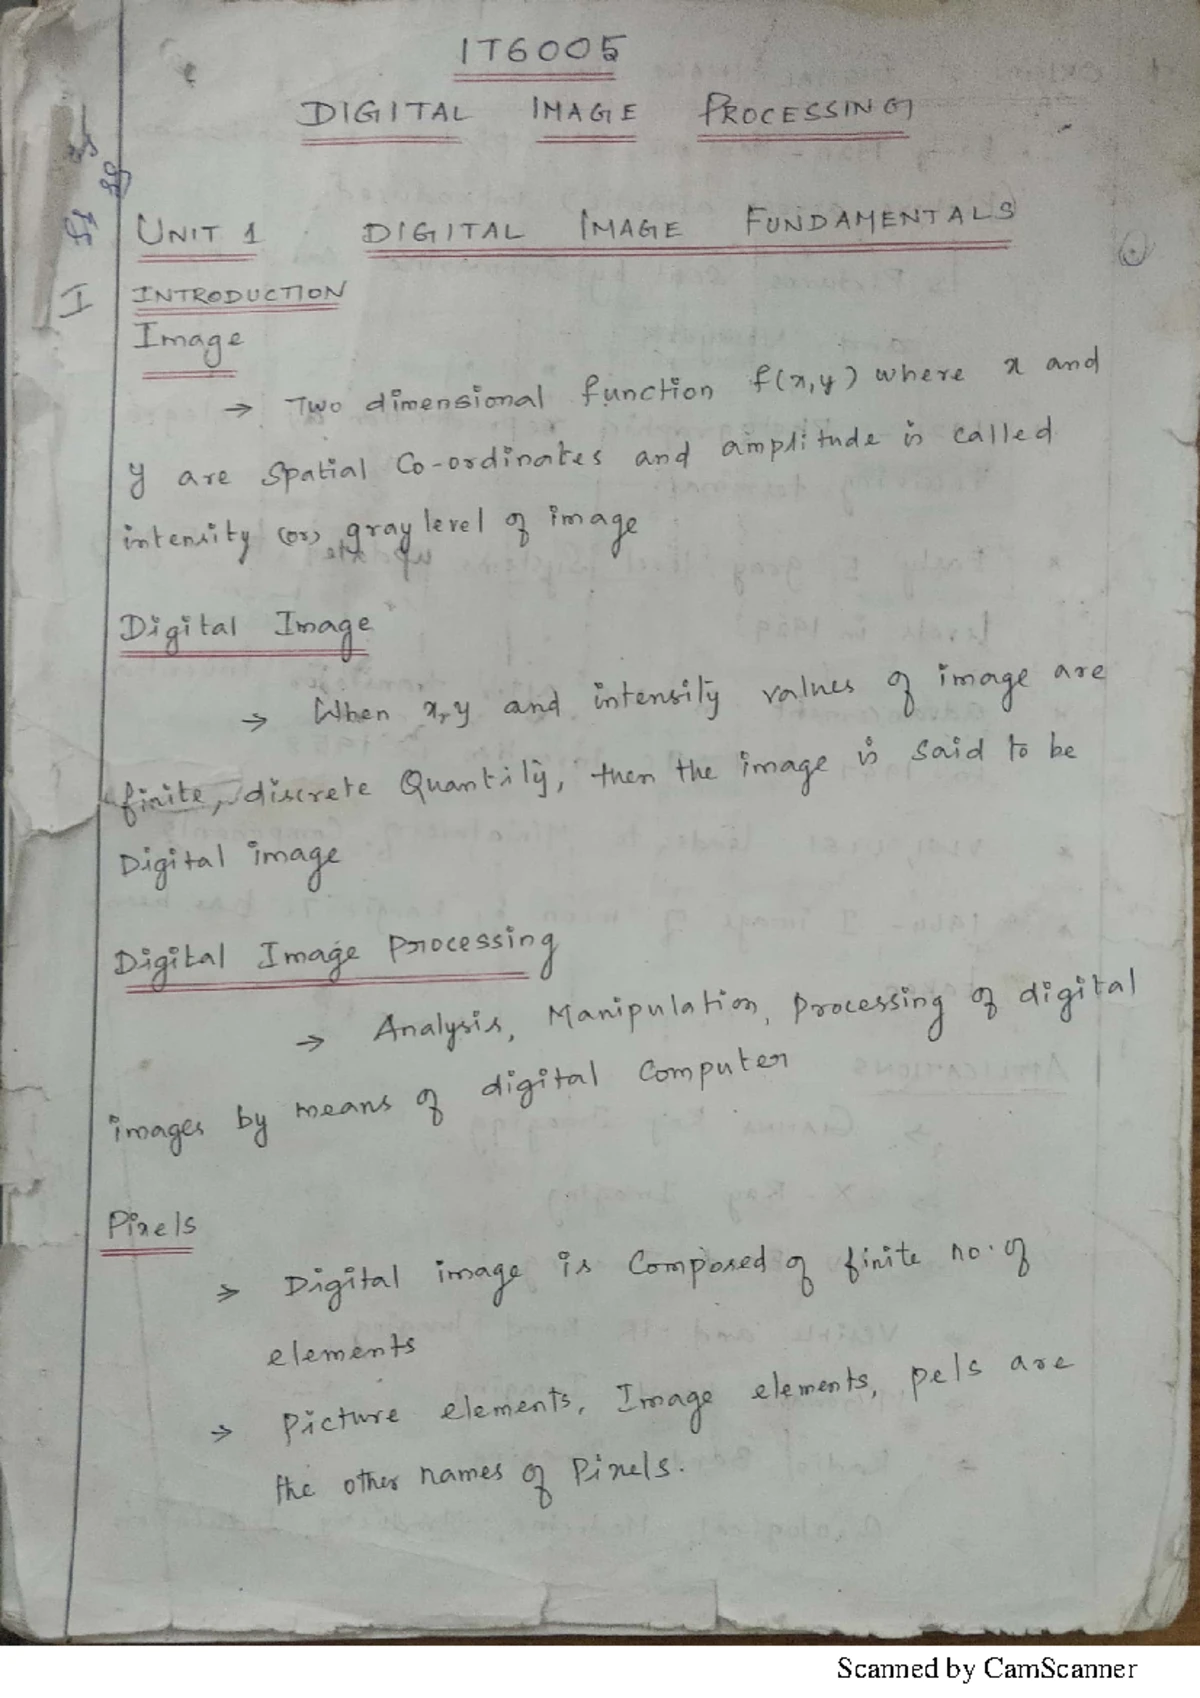 IT6005
DIGITAL IMAGE PROCESSING
UNIT 1 DIGITAL IMAGE FUNDAMENTALS
I INTRODUCTION
Image
→ Two dimensional function f(x,y) where x and
y are spatial Co-ordinates and amplitude is called
intensity (or) gray level of image
Digital Image
→ When x, y and intensity values of image are
finite, discrete Quantity, then the image is said to be
Digital image
Digital Image Processing
→ Analysis, Manipulation, Processing of digital
images by means of digital Computer
Pixels
→ Digital image is Composed of finite no. of
elements
→ Picture elements, Image elements, pels are
the other names of Pixels.
Scanned by CamScanner